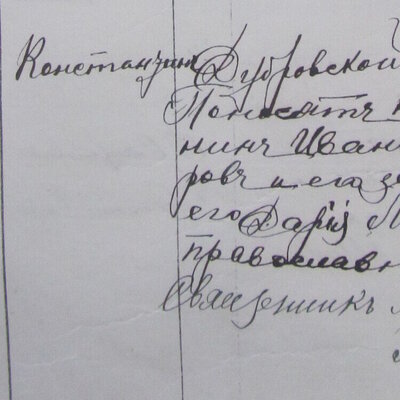 Константинъ Дубровской
нинъ Иван
ровъ и его за
его Дарія М
православн
Священникъ